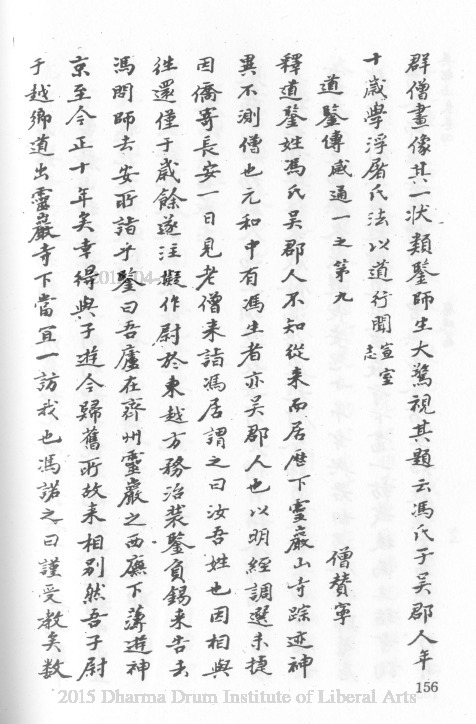 群僧畫像其一狀類鑒師生大驚視其題云馮氏子吳郡人年
十歲學浮屠氏法以道行聞宣室志
道鑒傳感通一之第九 僧贊寧
釋道鑒姓馮氏吳郡人不知從來而居歷下靈巖山寺踪迹神
異不測僧也元和中有馮生者亦吳郡人也以明經調選未捷
因僑寄長安一日見老僧來詣馮居謂之曰汝吾姓也因相與
往還僅于歲餘遂注擬作尉於東越方務治裝鑒負錫來告去
馮問師去安所詣乎鑒曰吾廬在齊州靈巖之西廡下薄遊神
京至今正十年矣幸得與子遊今歸舊所故來相別然吾子尉
于越鄉道出靈巖寺下當宜一訪我也馮諾之曰謹受教矣數
156
2015 Dharma Drum Institute of Liberal Arts